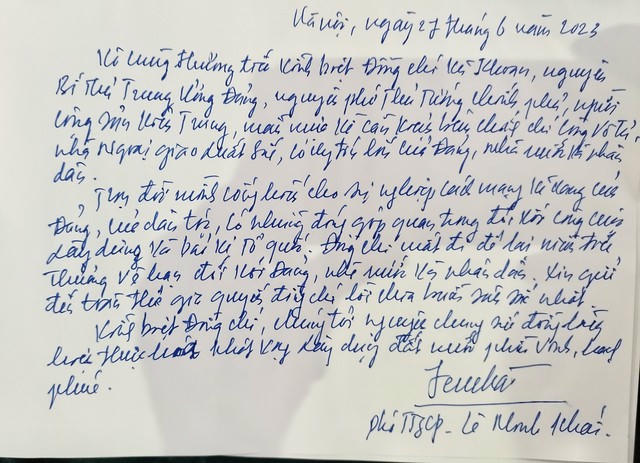 Hà Nội, ngày 27 tháng 6 năm 2023
Vô cùng thương tiếc Vĩnh biệt Đồng chí Vũ Khoan, nguyên
Bí thư Trung ương Đảng, nguyên phó Thủ Tướng chính phủ, người
cộng sản kiên Trung, mẫu mực về cần kiệm liêm chính chí công vô tư,
nhà ngoại giao xuất sắc, có uy tín lớn của Đảng, nhà nước và nhân
dân.
Trọn đời mình cống hiến cho sự nghiệp cách mạng vẻ vang của
Đảng, của dân tộc, có những đóng góp quan trọng đối với công cuộc
xây dựng và bảo vệ Tổ quốc. Đồng chí mất đi để lại niềm tiếc
Thương vô hạn đối với Đảng, nhà nước và nhân dân. Xin gửi
đến toàn thể gia quyến đồng chí lời chia buồn sâu sắc nhất.
Vĩnh biệt Đồng chí, chúng tôi nguyện chung sức đồng lòng
khát vọng xây dựng đất nước phồn vinh, hạnh
phúc.
phó TTgCP - Lê Minh Khái.